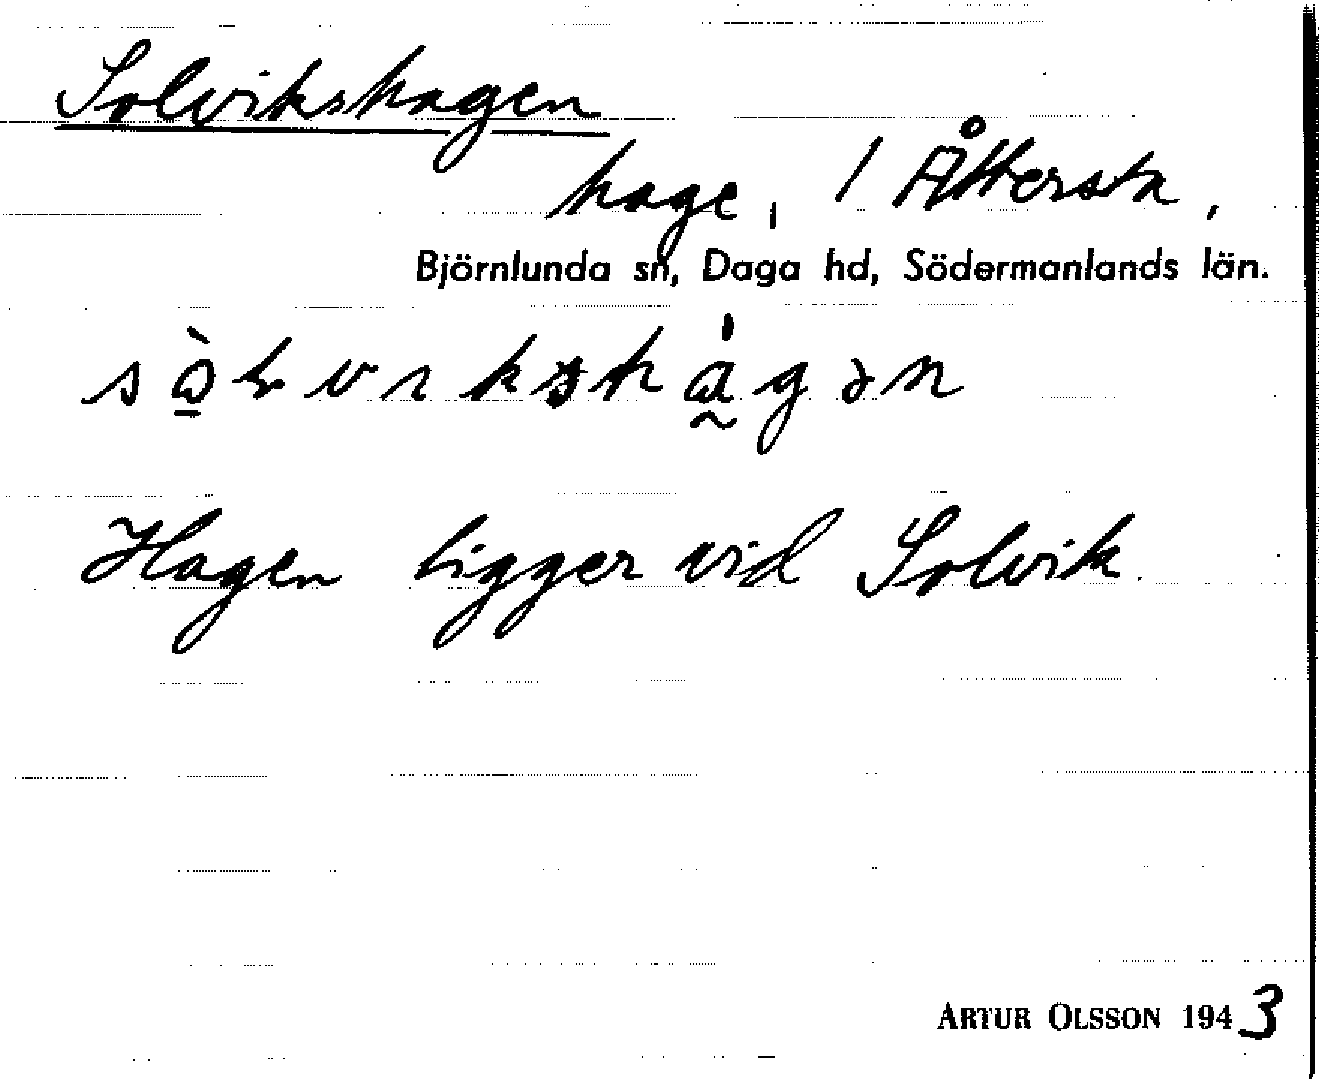 Solvikshagen
hage, / Åttersta,
Björnlunda sn, Daga hd, Södermanlands län.
Hagen ligger vid Solvik.
ARTUR OLSSON 1943